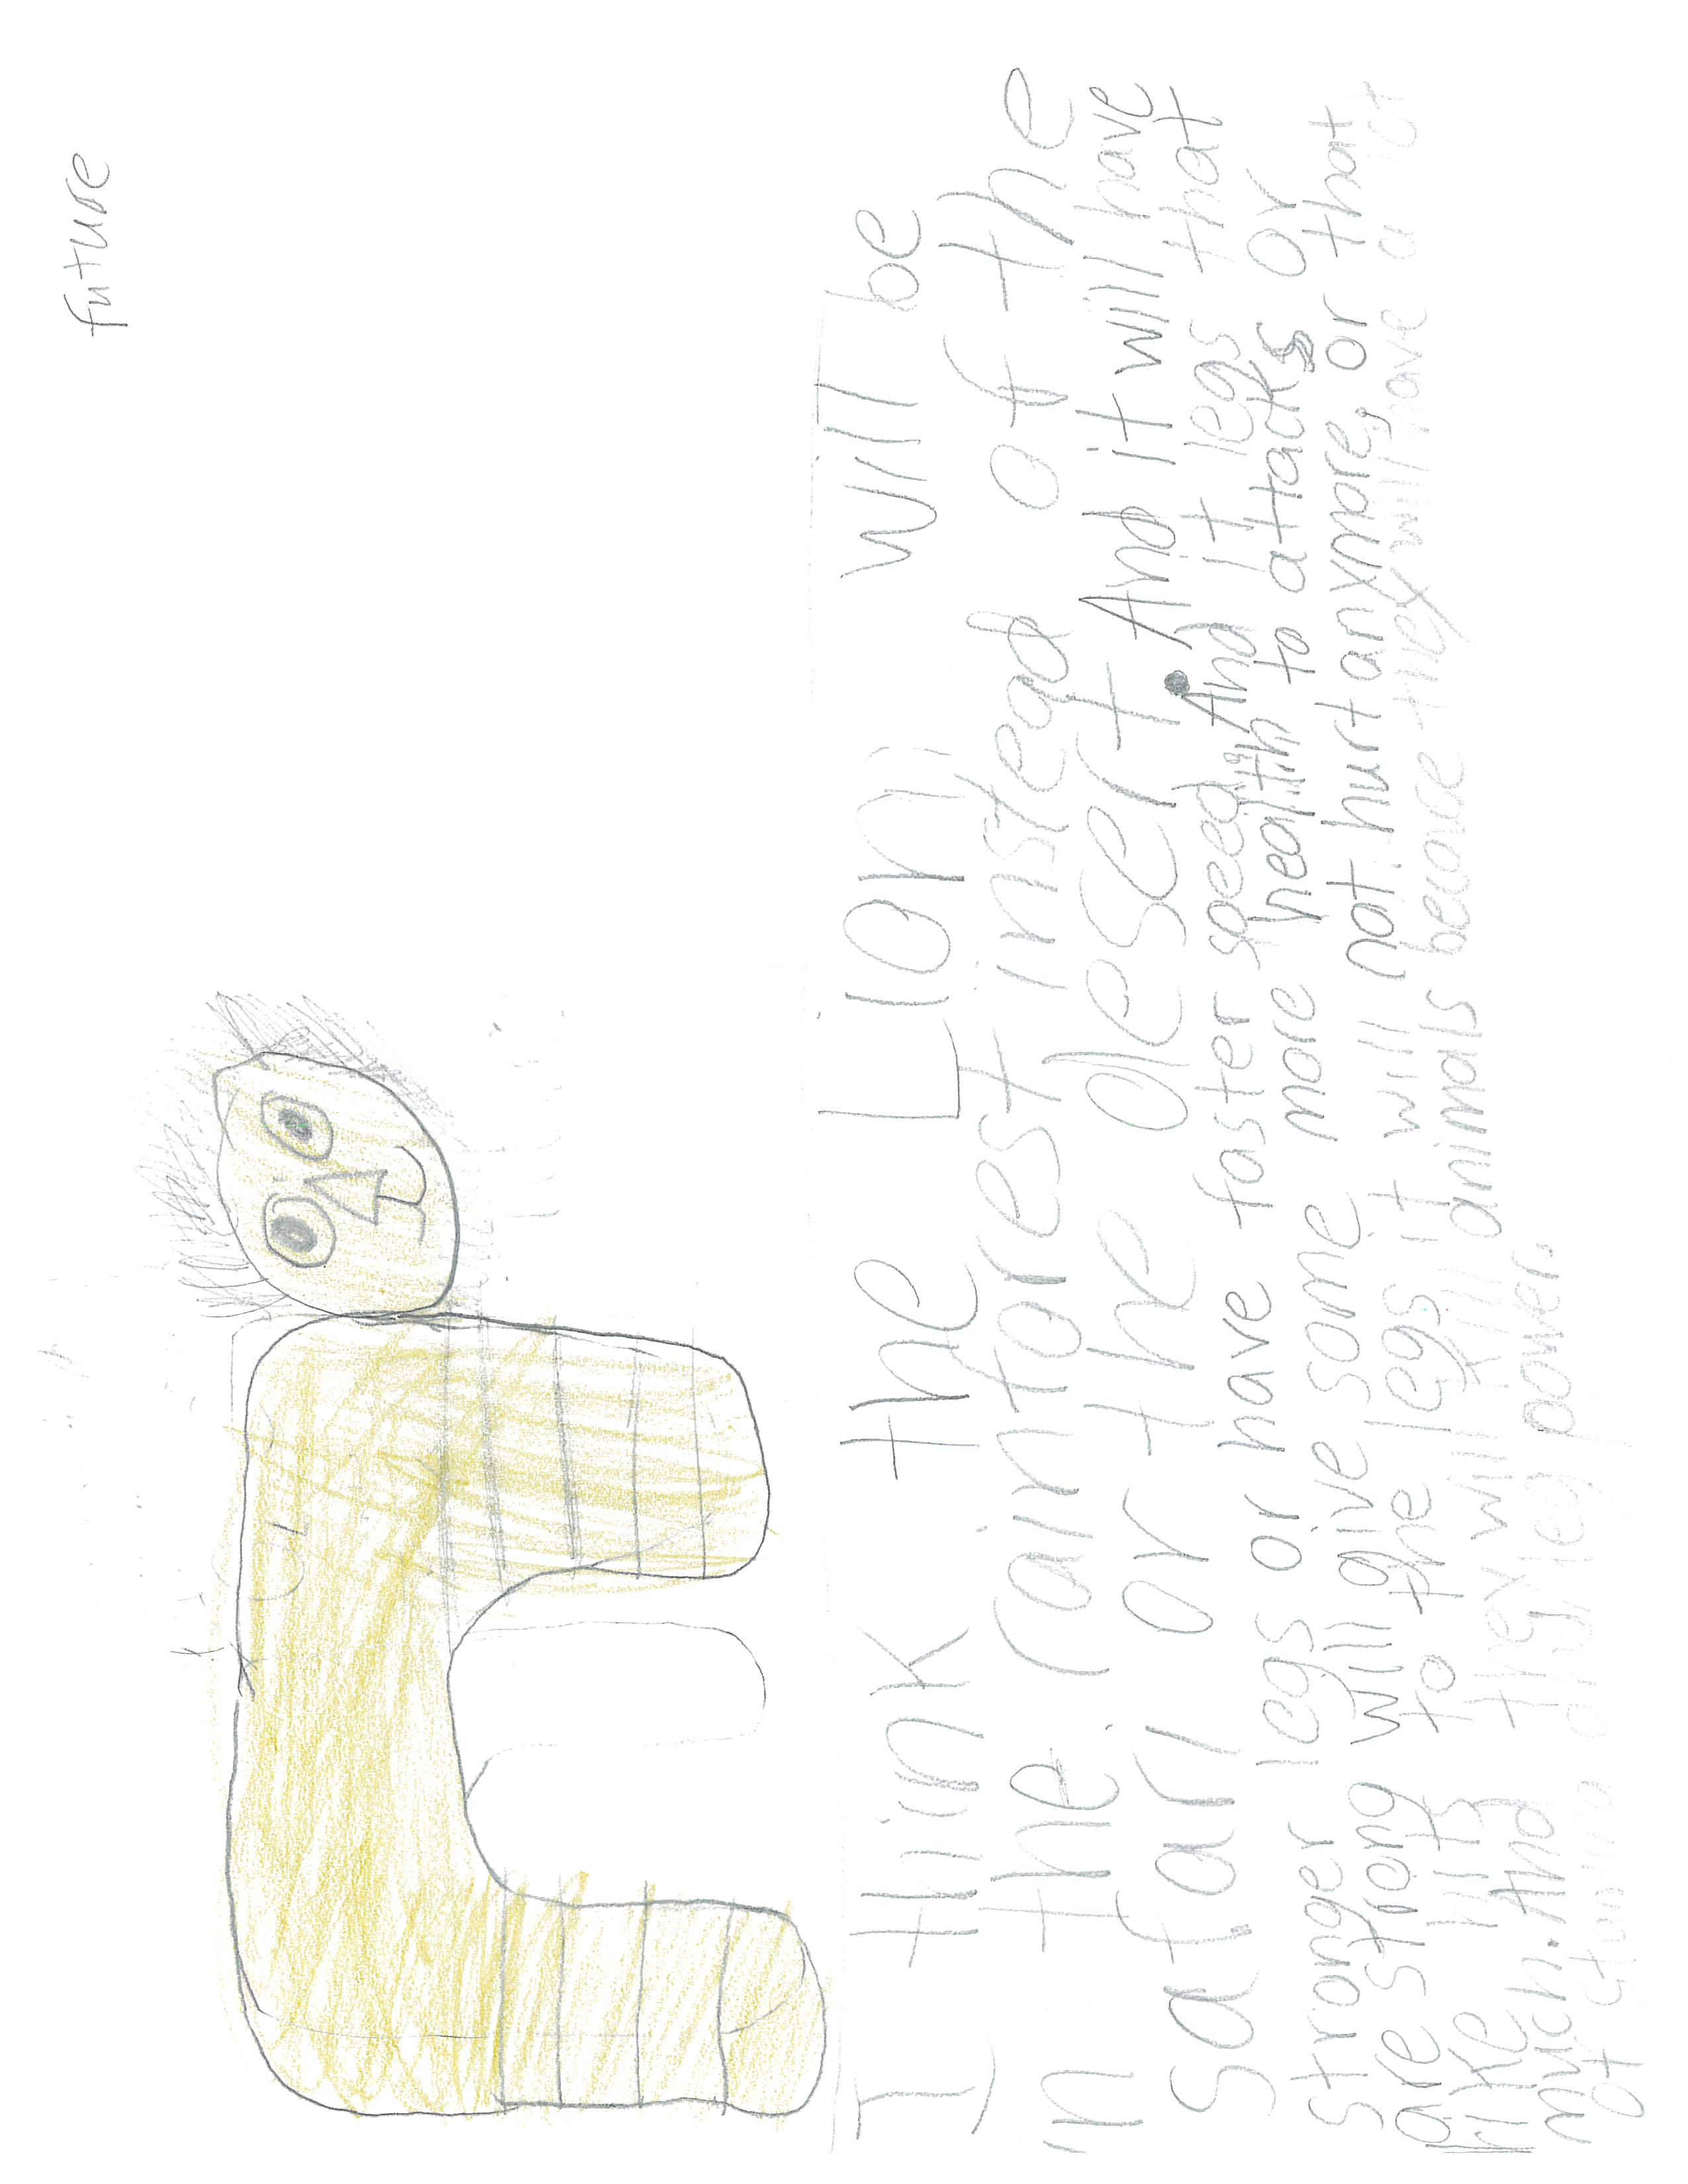 future
I think the Lion will be
in the rainforest instead of the
safari or the desert. And it will have
stronger legs or have faster speed. And it legs that
are strong will give some more health to attacks or
like hits to the legs it will not hurt anymore, or that
much. And they will kill animals because they will have a lot
of leg power.